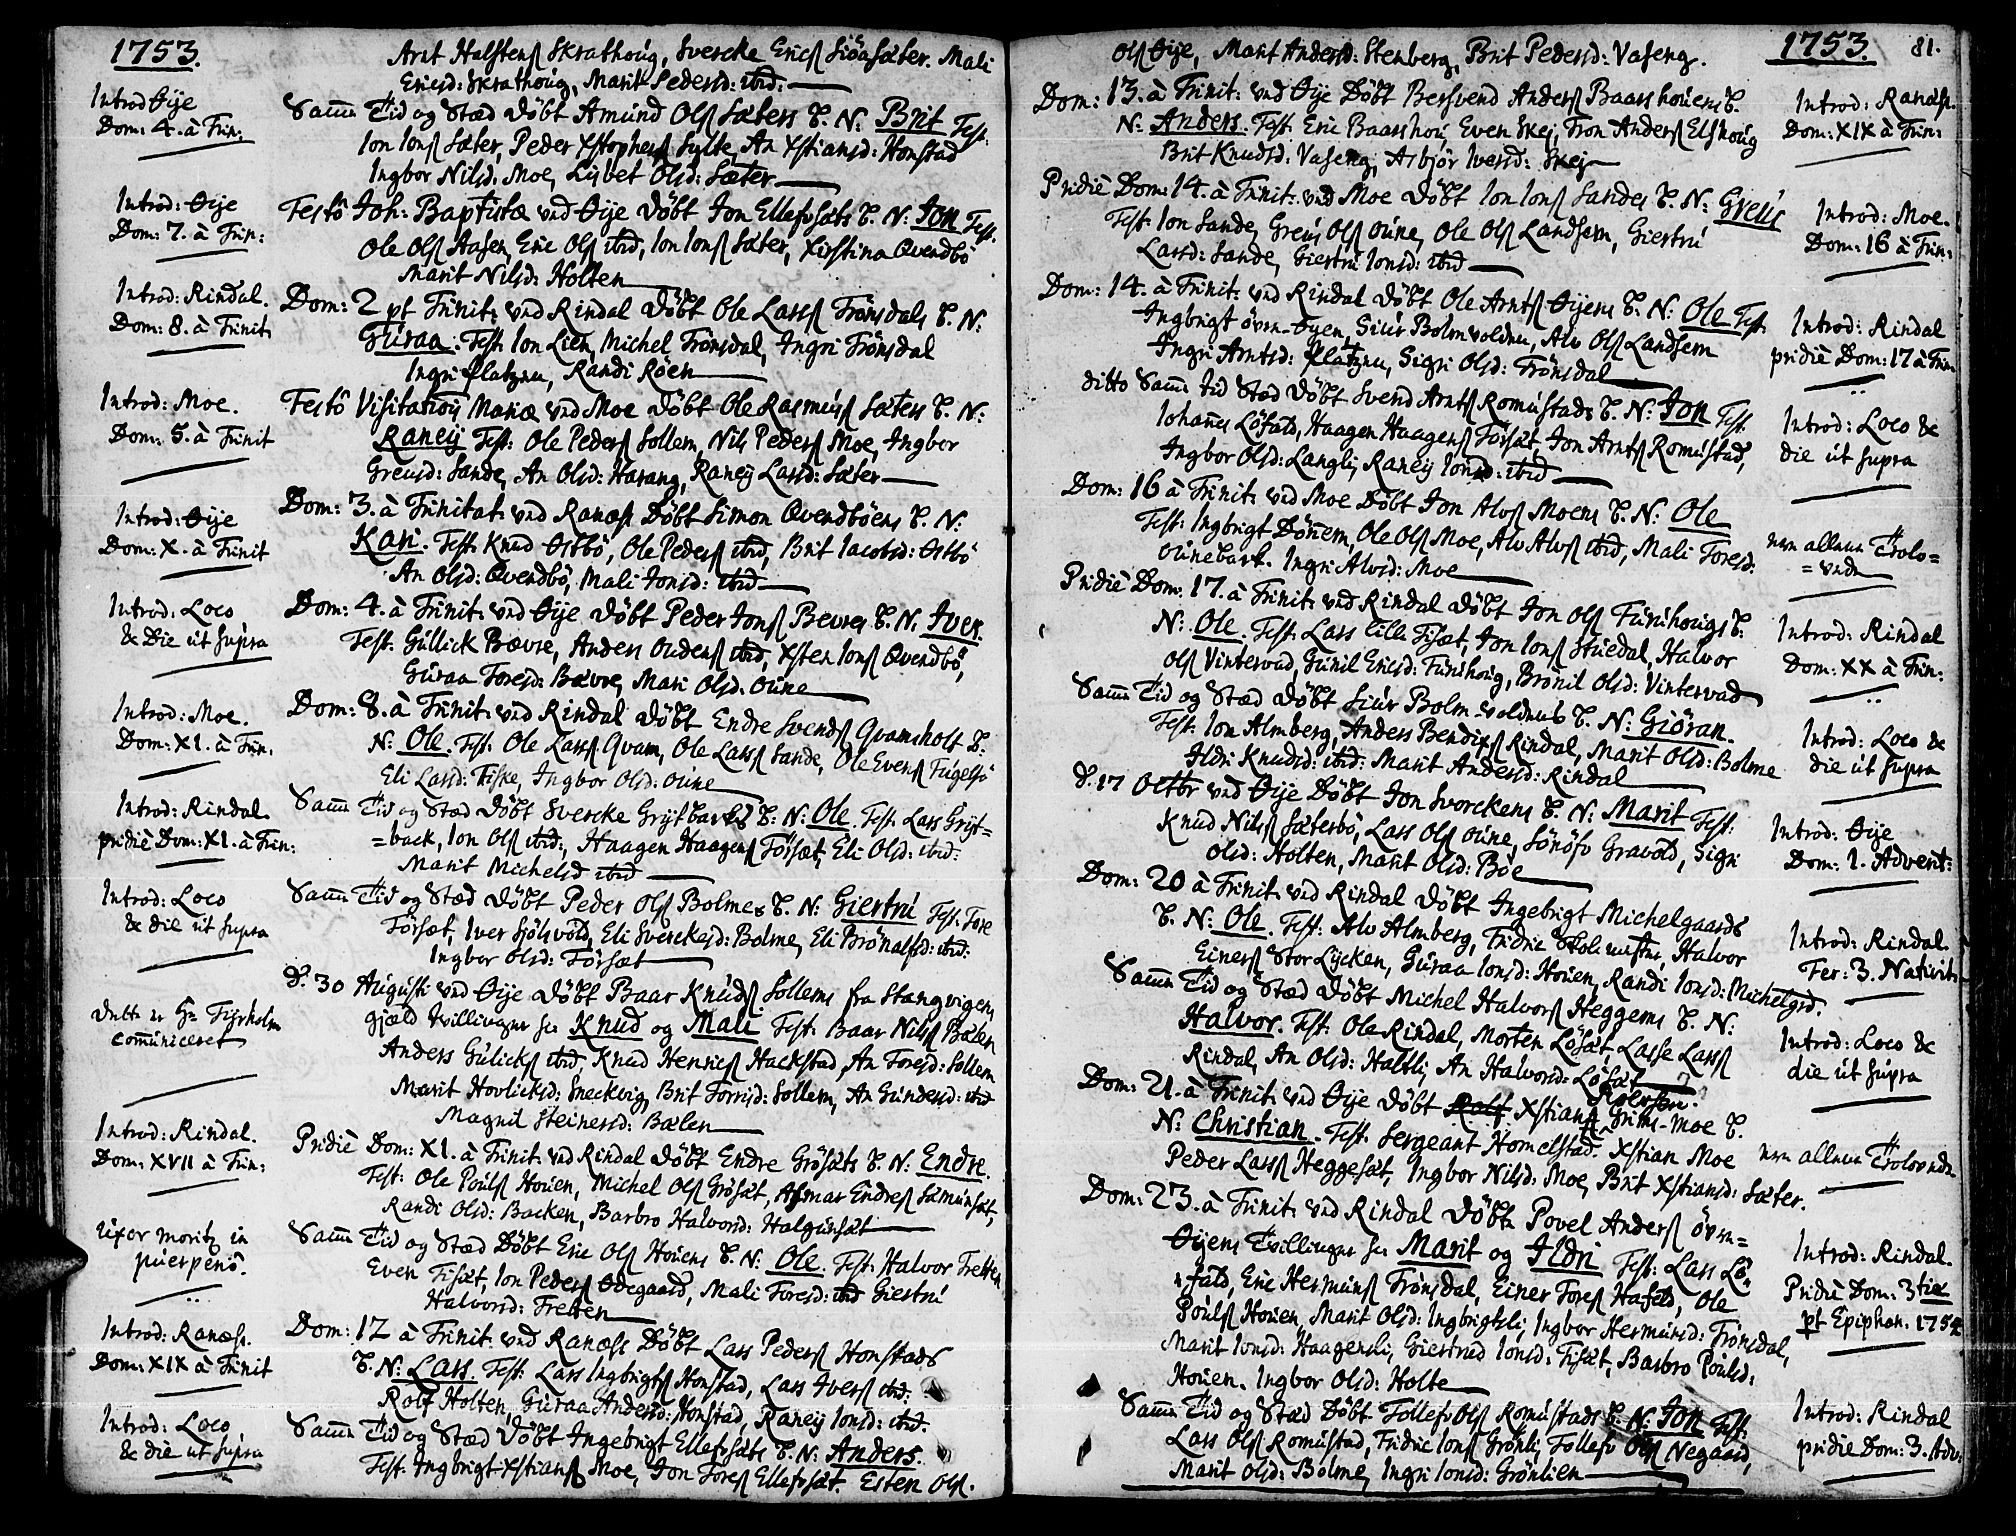 1753.
Arnt Halstens Skrathoug, Svercke Erics Siöasæter. Mali
Ericsd: Skrathoug, Marit Pedersd: ibid:
Introd Øije
Dom: 4. à Trin:
Samme Tid og Stæd Döbt Amund Ols Sæters B. N: Brit Test:
Ion Ions Sæter, Peder Xstophers Sylte, An Xstiansd: Honstad
Ingbor Nilsd: Moe, Lisbet Olsd: Sæter
Introd: Øije
Dom: 7. à Trin:
Festô Joh: Baptistæ ved Øije Döbt Jon Ellefsæts B. N: Jon Test.
Ole Ols Aasen, Eric Ols ibid, Ion Ions Sæter, Kirstina Qvendbö
Marit Nilsd: Holten
Introd: Rindal.
Dom: 8. à Trinit:
Dom: 2 pt Trinit: ved Rindal Döbt Ole Larss Trönsdals B. N:
Guraa. Test: Ion Lien, Michel Trönsdal, Ingri Trönsdal
Ingri Platznu, Randi Roen
Introd: Moe.
Dom: 5. à Trinit
Festô Visitationis Mariæ ved Moe Döbt Ole Rasmuss Sæters B. N:
Raneij Test: Ole Peders Sollem, Nils Peders Moe, Ingbor
Greusd: Sande, An Olsd: Harang, Raneij Larsd: Sæter
Introd: Øije
Dom: X. à Trinit
Dom: 3. à Trinitat: ved Ranæs Döbt Simon Qvendböens B. N:
Kari. Test: Knud Østbö, Ole Peders ibid, Brit Iacobsd: Østbö
An Olsd: Qvendbö, Mali Jonsd: ibid
Introd: Loco
& Die ut supra
Dom: 4. à Trinit: ved Øije Döbt Peder Jons Bevres B. N. Iver.
Test: Gullick Bævre, Anders Oudens ibid, Xsten Ions Qvendbö,
Guraa Toresd: Bævre, Mari Olsd: Oune
Introd: Moe.
Dom: XI. à Trin:
Dom: 8. à Trinit: ved Rindal Döbt Endre Svends Qvamsholt B.
N: Ole. Test: Ole Larss Qvam, Ole Larss Sande, Ole Evens Fugelsö
Eli Larsd: Fiske, Ingbor Olsd: Oune
Introd: Rindal.
pridiè Dom: XI. à Trin:
Samme Tid og Stæd Döbt Svercke Grytbacks B. N: Ole. Test: Lars Gryt=
=back, Ion Ols ibid:, Haagen Haagens Försæt, Eli Olsd: ibid:
Marit Michelsd ibid
Introd: Loco
& die ut supra
Samme Tid og Stæd Döbt Peder Ols Bolmes B. N: Giertru Test: Tore
Försæt, Iver Siölsvold, Eli Sverckesd: Bolme, Eli Brönalfsd: ibid:
Ingbor Olsd: Försæt
communiceret
D: 30 Augusti ved Øije Döbt Baar Knuds Sollems fra Stangvigens
gjæld tvillinger sc Knud og Mali Test: Baar Nilss Bælen
Anders Gulicks ibid, Knud Henrics Hackstad, An Toresd: Sollem
Marit Hovlicksd: Sneckvig, Brit Torrisd: Sollem, An Gundersd: ibid
Magnil Steinersd: Bælen
Introd: Rindal.
Dom: XVII à Trin:
Pridiè Dom: XI. à Trinit: ved Rindal Döbt Endre Grösæts B. N: Endre.
Test: Ole Pouls Houen, Michel Ols Grösæt, Asmar Endres Samunsæt,
Randi Olsd: Backen, Barbro Halvorsd: Halgunsæt
uxor moritz in
puerperiô.
Samme Tid og Stæd Döbt Eric Ols Houens B. N: Ole. Test: Halvor Tretten
Even Fiset, Ion Peders Ødegaard, Mali Toresd: ibid Giertru
Halvorsd: Tretten
Introd: Ranæss.
Dom: XIX à Trinit
Dom: 12 à Trinit: ved Ranæss Döbt Lars Peders Honstads
B. N: Lars. Test: Lars Ingbrigts Honstad, Lars Ivers ibid:
Rolf Holten, Guraa Andersd: Honstad, Raneij Ionsd: ibid.
Introd: Loco
& die ut supra
Samme Tid og Stæd Döbt Ingebrigt Ellefsæts B. N: Anders.
Test: Ingbrigt Xstians Moe, Jon Tores Ellefsæt. Esten Ols.
1753. 81.
Ols Øije, Marit Andersd: Stenberg, Brit Pedersd: Vaseng.
Dom: 13. à Trinit: ved Øije Döbt Bersvend Anders Baarshouens B.
N: Anders. Test: Eric Baarshou, Even Skej, Tron Anders Elshoug
Brit Knudsd: Vaseng, Asbjör Iversd: Skej
Introd: Ranæs.
Dom: XIX à Trin:
Pridiè Dom: 14. à Trinit: ved Moe Döbt Ion Ions Sandes B. N: Greus
Test: Ion Sande, Greus Ols Oune, Ole Ols Landsem, Giertru
Larsd: Sande, Giertru Ionsd: ibid
Introd: Moe.
Dom: 16 à Trin:
Dom: 14. à Trinit: ved Rindal Döbt Ole Arnts Øijens B. N: Ole Test.
Ingbrigt övre-Øyen, Siur Bolmvoldnu, Alv Ols Landsem
Ingri Arntsd: Platznu, Sigri Olsd: Trönsdal
Introd: Rindal
pridiè Dom: 17 à Trin:
ditto Samme tid Stæd Döbt Svend Arnts Romustads B. N: Jon Test.
Iohannes Löfald, Haagen Haagens Försæt, Jon Arnts Romustad,
Ingbor Olsd: Langli, Raneij Ionsd: ibid
Introd: Loco &
die ut supra
Dom: 16 à Trinit: ved Moe Döbt Jon Alvs Moens B. N: Ole
Test: Ingbrigt Dönem, Ole Ols Moe, Alv Alvs ibid, Mali Toresd:
Ounebark. Ingri Alvsd: Moe
Pridiè Dom: 17. à Trinit: ved Rindal Döbt Jon Ols Furuhougs B.
N: Ole. Test: Lars Lille Fiset, Jon Ions Stuedal, Halvor
Ols Vintervad, Gunil Ericsd: Furuhoug, Brönil Olsd: Vintervad
Introd: Rindal
Dom: XX à Trin:
Samme Tid og Stæd Döbt Siur Bolm-voldnus B. N: Giöran.
Test: Ion Almberg, Anders Bendixs Rindal, Marit Olsd: Bolme
Ildri Knudsd: ibid: Marit Andersd: Rindal
Introd: Loco &
die ut supra
D: 17 Octbr ved Øije Döbt Jon Svorckens B. N: Marit Test:
Knud Nilss Sæterbö, Lars Ols Oune, Sönöfv Gravold, Sigri
Olsd: Holten, Marit Olsd: Böe
Introd: Øije
Dom: 1. Advent:
Dom: 20 à Trinit: ved Rindal Döbt Ingebrigt Michelgaards
B. N: Ole. Test: Alv Almberg, Fridric Skolemester, Halvor
Einers StorLycken, Guraa Ionsd: Houen, Randi Ionsd: Michelgrd.
Introd: Rindal.
Fer: 3. Nativit:
Samme Tid og Stæd Döbt Michel Halvors Heggems B. N:
Halvor. Test: Ole Rindal, Morten Lösæt, Lasse Larss
Rindal, An Olsd: Haltli, An Halvorsd: Lösæt
Introd: Loco &
die ut supra
Dom: 21. à Trinit: ved Øije Döbt Rolf Xstians Grims-Moe B.
N: Christian. Test: Sergeant Homelstad. Xstian Moe
Peder Larss Heggesæt, Ingbor Nilsd: Moe, Brit Xstiansd: Sæter.
Dom: 23. à Trinit: ved Rindal Döbt Povel Anders övre=
Øijens Tvillinger sc Marit og Ildri Test: Lars Lö=
=fald, Eric Hermuns Trönsdal, Einer Tores Hafeld, Ole
Pouls Houen, Marit Olsd: Ingbrigtsli, Ingbor Hermunsd: Trönsdal,
Marit Ionsd: Haagensli, Giertrud Ionsd: Fiset, Barbro Poulsd:
Houen. Ingbor Olsd: Holte
Introd: Rindal.
Pridiè Dom: 3tiæ
pt Epiphan. 1754
Samme Tid og Stæd Döbt Tollefv Ols Romustads B. N: Jon Test.
Lars Ols Romustad, Fridric Ions Grönli, Tollefv Ols Negaard,
Marit Olsd: Bolme, Ingri Ionsd: Grönlien
Introd: Rindal
pridiè Dom: 3. Adv: